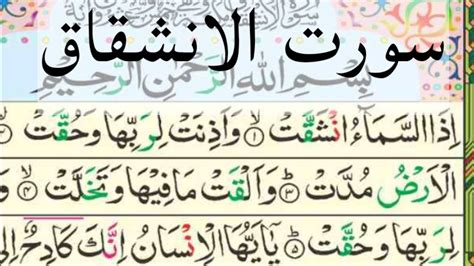 سورت الانشقاق
بِسْمِ اللهِ الرَّحْمٰنِ الرَّحِيْمِ
اِذَا السَّمَآءُ انْشَقَّتْ ۙ﴿۱﴾ وَاَذِنَتْ لِرَبِّهَا وَحُقَّتْ ۙ﴿۲﴾
الْاَرْضُ مُدَّتْ ۙ﴿۳﴾ وَاَلْقَتْ مَا فِيْهَا وَتَخَلَّتْ ۙ﴿۴﴾
لِرَبِّهَا وَحُقَّتْ ؕ﴿۵﴾ يٰۤاَيُّهَا الْاِنْسَانُ اِنَّكَ كَادِحٌ اِلٰى